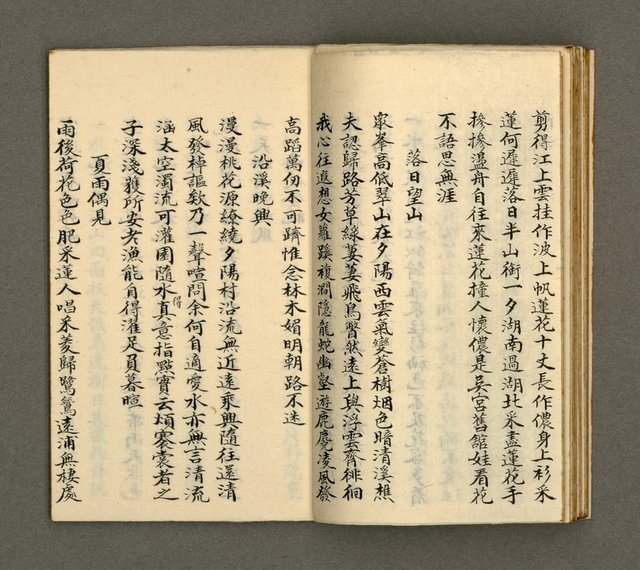 剪得江上雲挂作波上帆蓮花十丈長作儂身上衫采
蓮何遲遲落日半山街一夕湖南過湖北采盡蓮花手
摻摻盪舟自往來蓮花撞人懷儂是吳宮舊舘娃看花
不語思無涯
落日望山
眾峯高低翠山在夕陽西雲氣變蒼樹烟色暗清溪樵
夫認歸路芳草綠萋萋飛鳥瞥然遠上與浮雲齊徘徊
我心往遐想女蘿蹊複澗隱龍蛇幽壑遊鹿麑淩風發
高蹈萬仞不可躋惟念林木媚明朝路不迷
沿溪晚興
漫漫桃花源繚繞夕陽村沿流無近遠乘興隨往還清
風發棹謳欸乃一聲喧問余何自適愛水亦無言清流
涵太空濁流可灌園隨水得真意指點實云煩褰裳者之
子深淺獲所安老漁能自得濯足負暮暄
夏雨偶見
雨後荷花色色肥采蓮人唱采菱歸鷺鷥遠浦無棲處